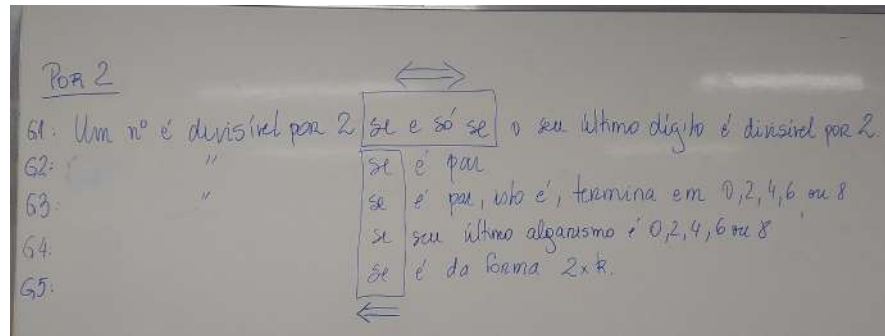 POR 2
⟺
G1: Um nº é divisível por 2 se e só se o seu último dígito é divisível por 2.
G2: " se é par
G3: " se é par, isto é, termina em 0,2,4,6 ou 8
G4: se seu último algarismo é 0,2,4,6 ou 8
G5: se é da forma 2×k.
⟸